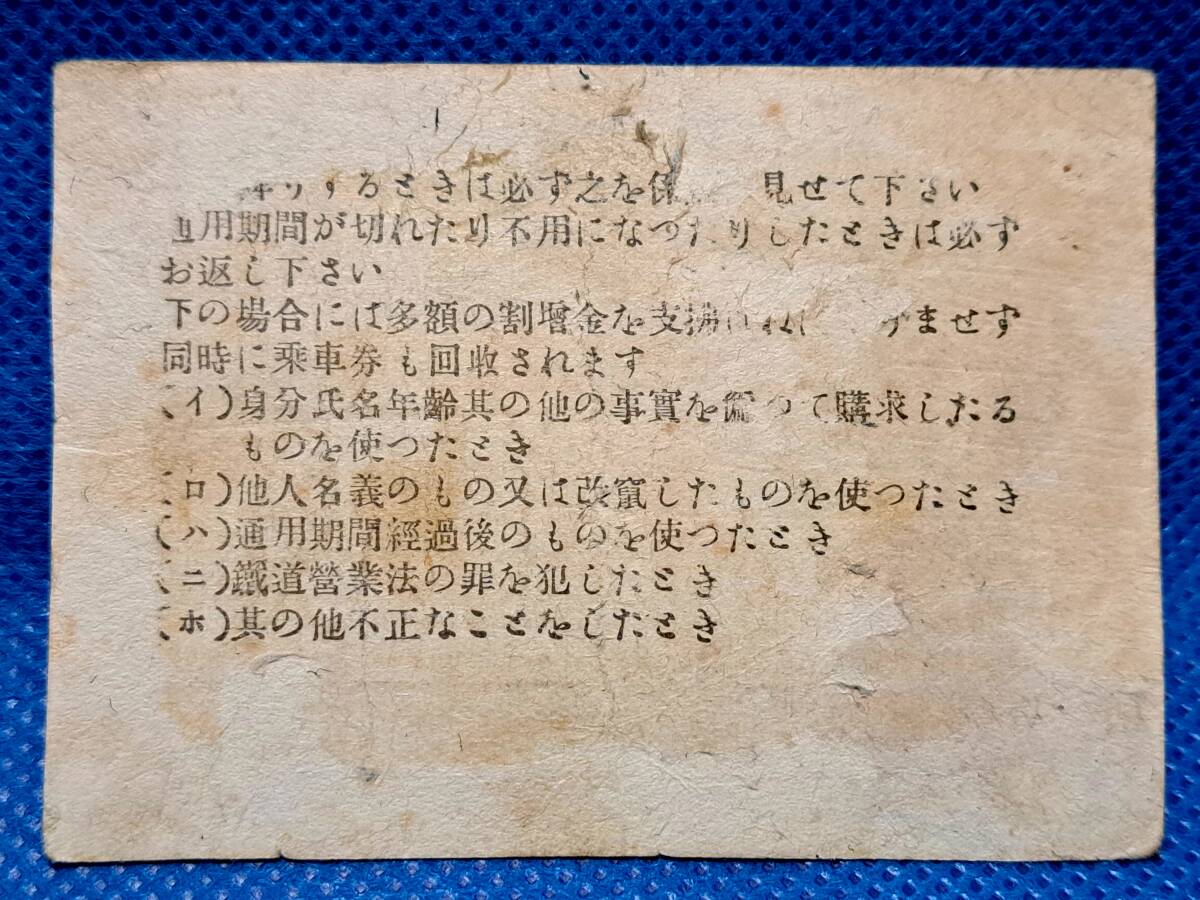 りするときは必ず之を係 見せて下さい
用期間が切れたり不用になつたりしたときは必ず
お返し下さい
下の場合には多額の割增金を支拂 ませず
同時に乘車券も回收されます
(イ)身分氏名年齡其の他の事實を つて購求したる
ものを使つたとき
(ロ)他人名義のもの又は改竄したものを使つたとき
(ハ)通用期間經過後のものを使つたとき
(ニ)鐵道營業法の罪を犯したとき
(ホ)其の他不正なことをしたとき